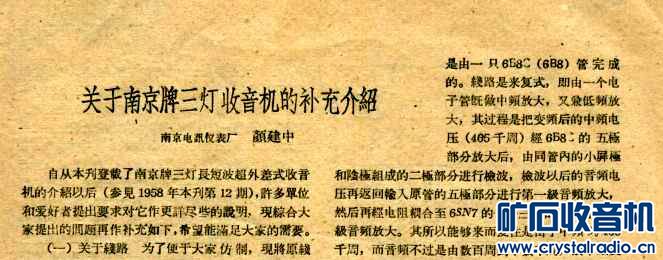 关于南京牌三灯收音机的补充介紹
南京电訊仪表厂 顏建中
自从本刊登載了南京牌三灯長短波超外差式收音
机的介紹以后(参見 1958 年本刊第 12 期),許多單位
和爱好者提出要求对它作更詳尽些的說明,現綜合大
家提出的問題再作补充如下,希望能滿足大家的需要。
(一)关于綫路 为了便于大家仿制,現將原綫
是由一只 6Б8С (6B8) 管完成
的。綫路是来复式,即由一个电
子管既做中頻放大,又做低頻放
大,其过程是把变頻后的中頻电
压(465 千周)經 6Б8С 的五極
部分放大后,由同管內的小屏極
和陰極組成的二極部分進行檢波,檢波以后的音頻电
压再返回輸入原管的五極部分進行第一級音頻放大,
然后再經电阻耦合至 6SN7 的
級音頻放大。其所以能够来而
千周,而音頻不过是由数百周
矿石收音机
www.crystalradio.cn